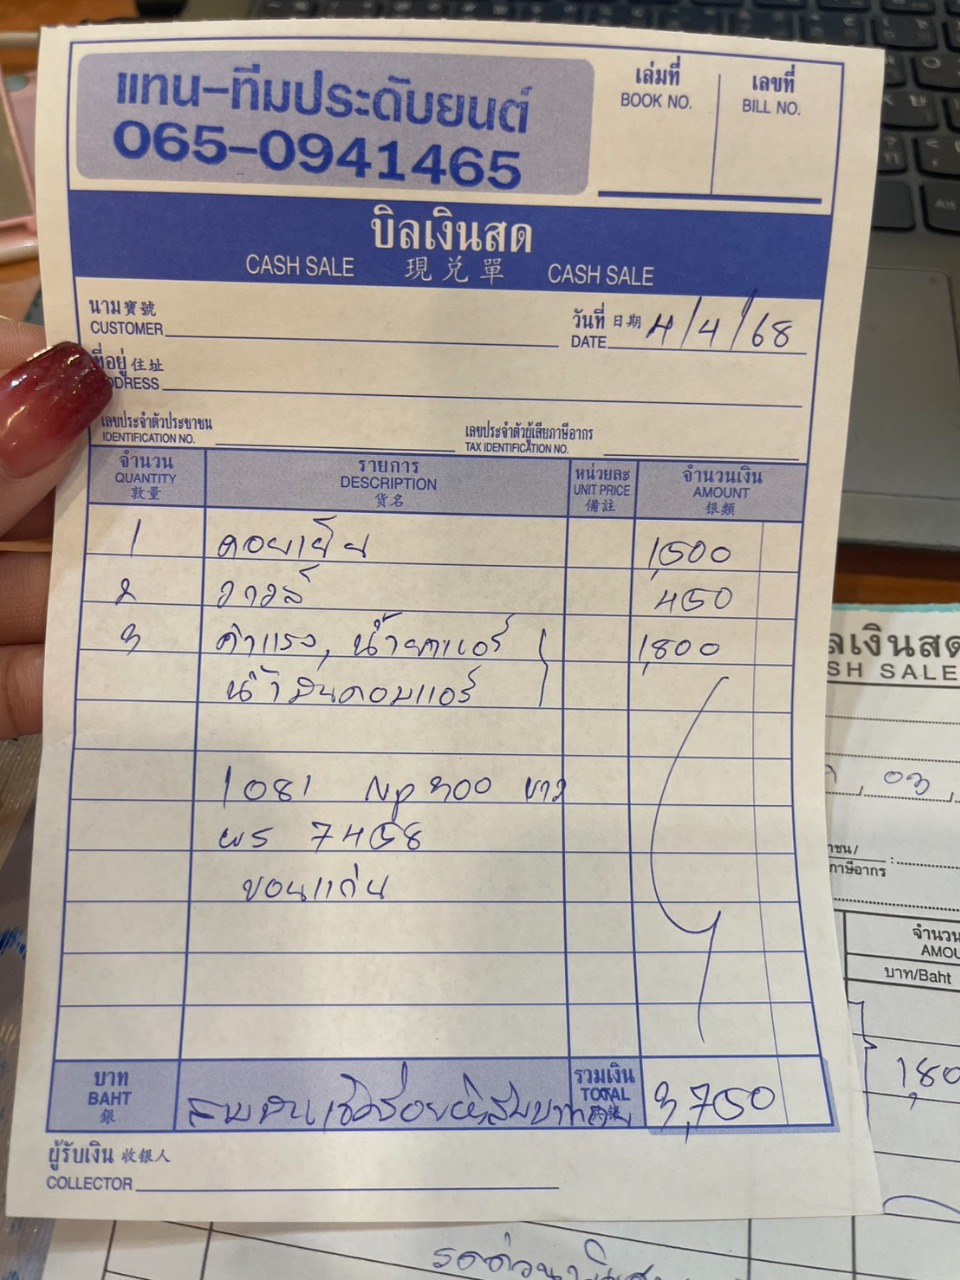 แทน-ทีมประดับยนต์
065-0941465
เล่มที่
BOOK NO.
เลขที่
BILL NO.
บิลเงินสด
CASH SALE 現兌單 CASH SALE
นาม寳號
CUSTOMER
วันที่ 日期
DATE 4/4/68
ที่อยู่ 住址
ADDRESS
เลขประจำตัวประชาชน
IDENTIFICATION NO.
เลขประจำตัวผู้เสียภาษีอากร
TAX IDENTIFICATION NO.
จำนวน QUANTITY 數量
รายการ DESCRIPTION 貨名
หน่วยละ UNIT PRICE 備註
จำนวนเงิน AMOUNT 銀額
1 คอยเย็น 1,500
2 วาวล์ 450
3 ค่าแรง, น้ำยาแอร์ 1,800
น้ำมันคอมแอร์
1081 NP 300 ขาว
ผร 7458
ขอนแก่น
บาท BAHT 銀
สามพันเจ็ดร้อยห้าสิบบาท
รวมเงิน TOTAL
3,750
ผู้รับเงิน 收銀人
COLLECTOR
ลเงินสด
SH SALE
03
ชน/
ภาษีอากร
จำนวน
AMOU
บาท/Baht
1,80